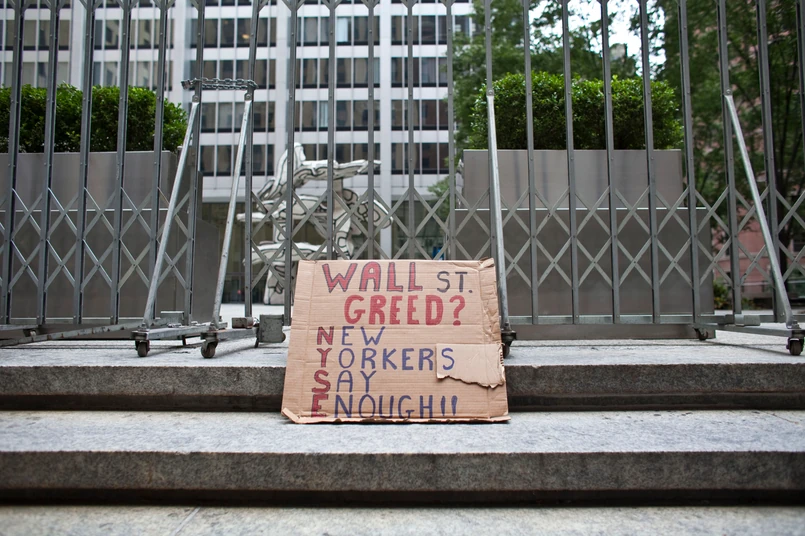 WALL ST.
GREED?
NEW
YORKERS
SAY
ENOUGH!!